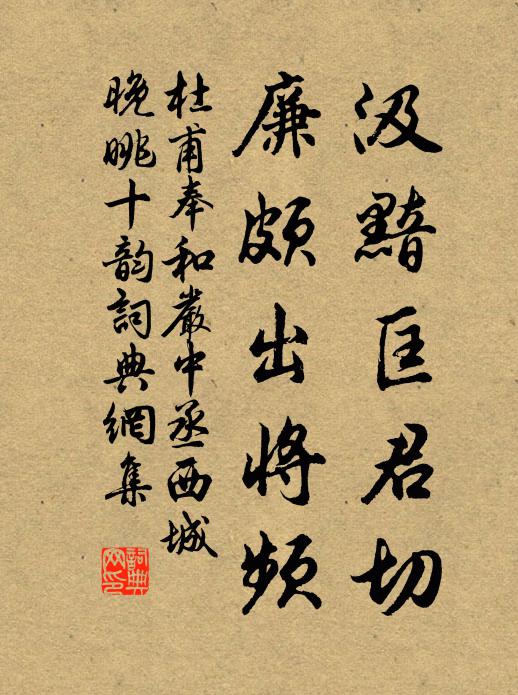 汲黯匡君切
廉頗出將頻
杜甫奉和嚴中丞西城
晚眺十韵詞典網集
詞典網印